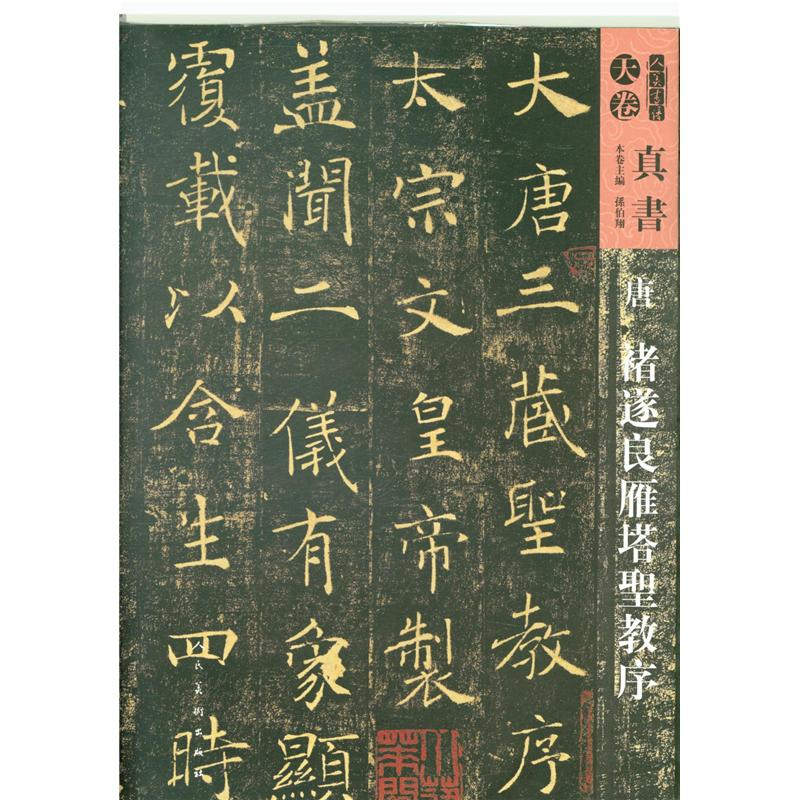 人美書譜
天卷
真書
本卷主編 孫伯翔
唐 褚遂良雁塔聖教序
大唐三藏聖教序
太宗文皇帝製
盖聞二儀有象顯
覆載以含生四時
人民美術出版社